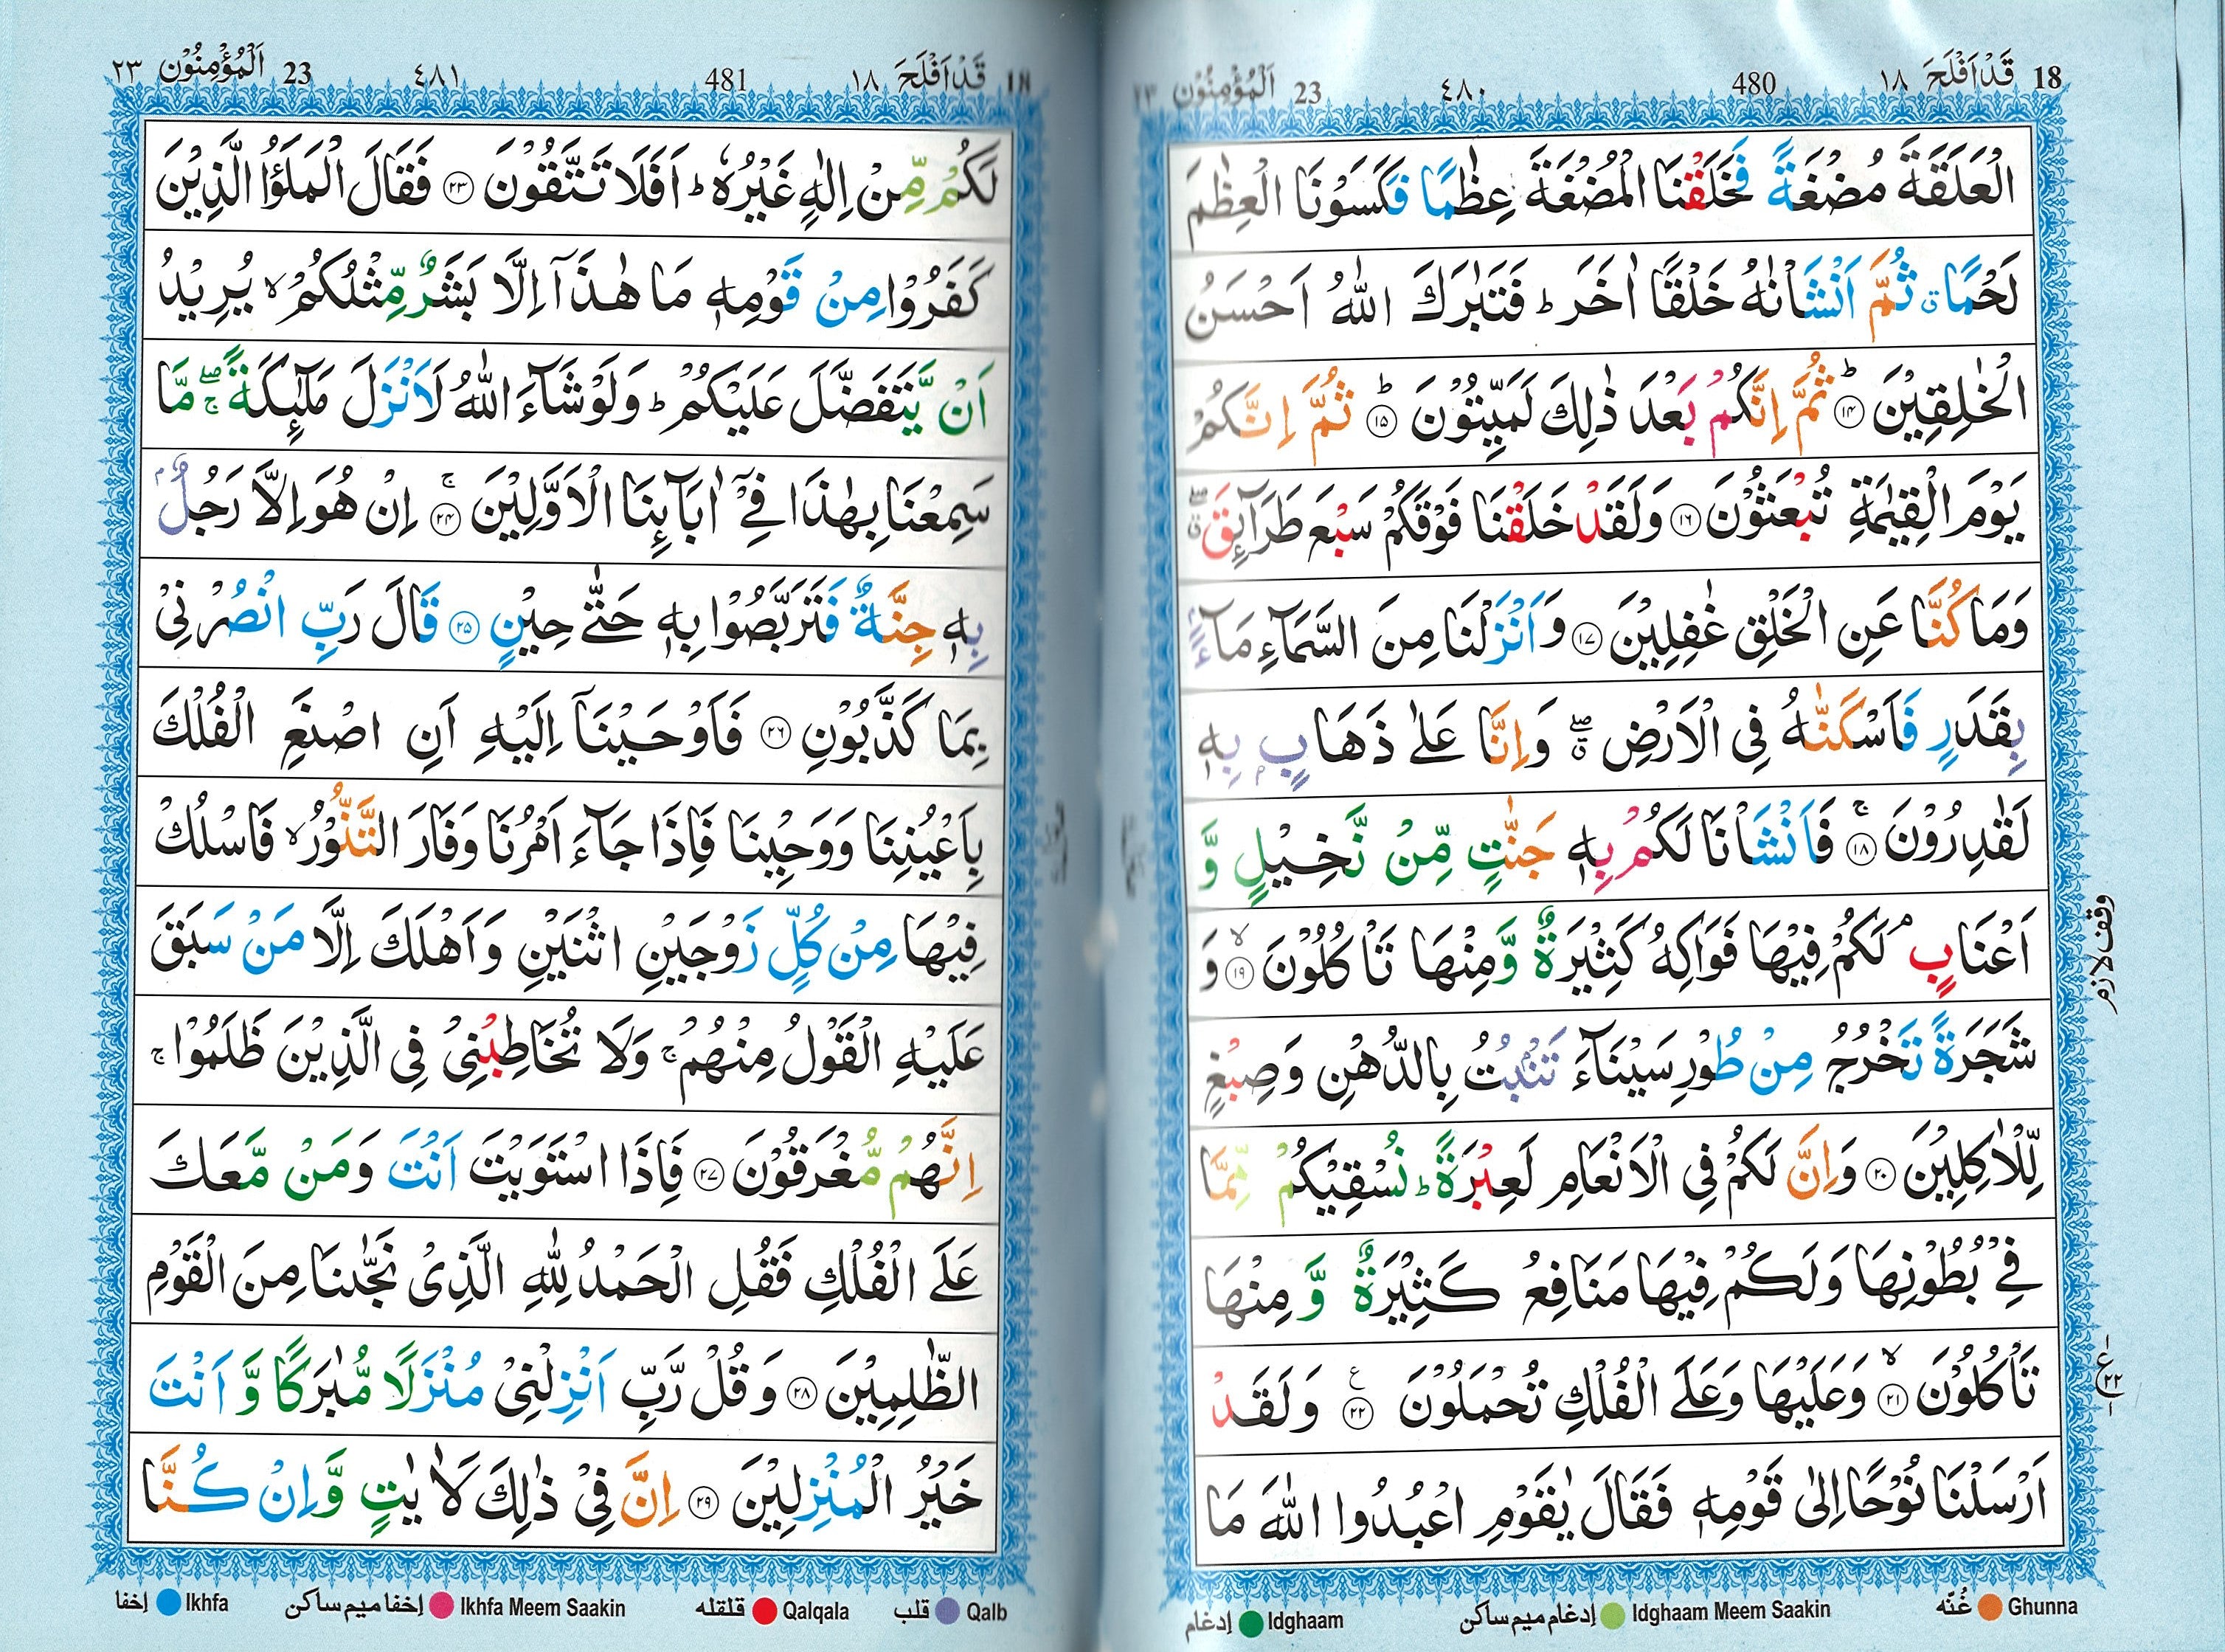 18 قَدْ اَفْلَحَ ١٨ 480 ٤٨٠ 23 اَلْمُؤْمِنُوْن ٢٣
الْعَلَقَةَ مُضْغَةً فَخَلَقْنَا الْمُضْغَةَ عِظٰمًا فَكَسَوْنَا الْعِظٰمَ
لَحْمًا ۗ ثُمَّ اَنْشَاْنٰهُ خَلْقًا اٰخَرَ ؕ فَتَبٰرَكَ اللّٰهُ اَحْسَنُ
الْخٰلِقِيْنَ ؕ ﴿١٤﴾ ثُمَّ اِنَّكُمْ بَعْدَ ذٰلِكَ لَمَيِّتُوْنَ ؕ ﴿١٥﴾ ثُمَّ اِنَّكُمْ
يَوْمَ الْقِيٰمَةِ تُبْعَثُوْنَ ﴿١٦﴾ وَلَقَدْ خَلَقْنَا فَوْقَكُمْ سَبْعَ طَرَآئِقَ ۖق
وَمَا كُنَّا عَنِ الْخَلْقِ غٰفِلِيْنَ ﴿١٧﴾ وَاَنْزَلْنَا مِنَ السَّمَآءِ مَآءًۢ
بِقَدَرٍ فَاَسْكَنّٰهُ فِى الْاَرْضِ ۖق وَاِنَّا عَلٰى ذَهَابٍۭ بِهٖ
لَقٰدِرُوْنَ ۚ ﴿١٨﴾ فَاَنْشَاْنَا لَكُمْ بِهٖ جَنّٰتٍ مِّنْ نَّخِيْلٍ وَّ
اَعْنَابٍ ۘ لَكُمْ فِيْهَا فَوَاكِهُ كَثِيْرَةٌ وَّمِنْهَا تَاْكُلُوْنَ ۙ ﴿١٩﴾ وَ
شَجَرَةً تَخْرُجُ مِنْ طُوْرِ سَيْنَآءَ تَنْۢبُتُ بِالدُّهْنِ وَصِبْغٍ
لِّلْاٰكِلِيْنَ ﴿٢٠﴾ وَاِنَّ لَكُمْ فِى الْاَنْعَامِ لَعِبْرَةً ؕ نُسْقِيْكُمْ مِّمَّا
فِىْ بُطُوْنِهَا وَلَكُمْ فِيْهَا مَنَافِعُ كَثِيْرَةٌ وَّ مِنْهَا
تَاْكُلُوْنَ ۙ ﴿٢١﴾ وَعَلَيْهَا وَعَلَى الْفُلْكِ تُحْمَلُوْنَ ع ﴿٢٢﴾ وَلَقَدْ
اَرْسَلْنَا نُوْحًا اِلٰى قَوْمِهٖ فَقَالَ يٰقَوْمِ اعْبُدُوا اللّٰهَ مَا
وقف لازم
ع ٢٢
إدغام Idghaam إدغام ميم ساكن Idghaam Meem Saakin غُنّه Ghunna
18 قَدْ اَفْلَحَ ١٨ 481 ٤٨١ 23 اَلْمُؤْمِنُوْن ٢٣
لَكُمْ مِّنْ اِلٰهٍ غَيْرُهٗ ؕ اَفَلَا تَتَّقُوْنَ ﴿٢٣﴾ فَقَالَ الْمَلَؤُا الَّذِيْنَ
كَفَرُوْا مِنْ قَوْمِهٖ مَا هٰذَاۤ اِلَّا بَشَرٌ مِّثْلُكُمْ ۙ يُرِيْدُ
اَنْ يَّتَفَضَّلَ عَلَيْكُمْ ؕ وَلَوْ شَآءَ اللّٰهُ لَاَنْزَلَ مَلٰٓئِكَةً ۖۚ مَّا
سَمِعْنَا بِهٰذَا فِىْۤ اٰبَآئِنَا الْاَوَّلِيْنَ ۚ ﴿٢٤﴾ اِنْ هُوَ اِلَّا رَجُلٌۢ
بِهٖ جِنَّةٌ فَتَرَبَّصُوْا بِهٖ حَتّٰى حِيْنٍ ﴿٢٥﴾ قَالَ رَبِّ انْصُرْنِىْ
بِمَا كَذَّبُوْنِ ﴿٢٦﴾ فَاَوْحَيْنَاۤ اِلَيْهِ اَنِ اصْنَعِ الْفُلْكَ
بِاَعْيُنِنَا وَوَحْيِنَا فَاِذَا جَآءَ اَمْرُنَا وَفَارَ التَّنُّوْرُ ۙ فَاسْلُكْ
فِيْهَا مِنْ كُلٍّ زَوْجَيْنِ اثْنَيْنِ وَاَهْلَكَ اِلَّا مَنْ سَبَقَ
عَلَيْهِ الْقَوْلُ مِنْهُمْ ۚ وَلَا تُخَاطِبْنِىْ فِى الَّذِيْنَ ظَلَمُوْا ۚ
اِنَّهُمْ مُّغْرَقُوْنَ ﴿٢٧﴾ فَاِذَا اسْتَوَيْتَ اَنْتَ وَمَنْ مَّعَكَ
عَلَى الْفُلْكِ فَقُلِ الْحَمْدُ لِلّٰهِ الَّذِىْ نَجّٰىنَا مِنَ الْقَوْمِ
الظّٰلِمِيْنَ ﴿٢٨﴾ وَقُلْ رَّبِّ اَنْزِلْنِىْ مُنْزَلًا مُّبٰرَكًا وَّ اَنْتَ
خَيْرُ الْمُنْزِلِيْنَ ﴿٢٩﴾ اِنَّ فِىْ ذٰلِكَ لَاٰيٰتٍ وَّاِنْ كُنَّا
إخفا Ikhfa إخفا ميم ساكن Ikhfa Meem Saakin قلقله Qalqala قلب Qalb